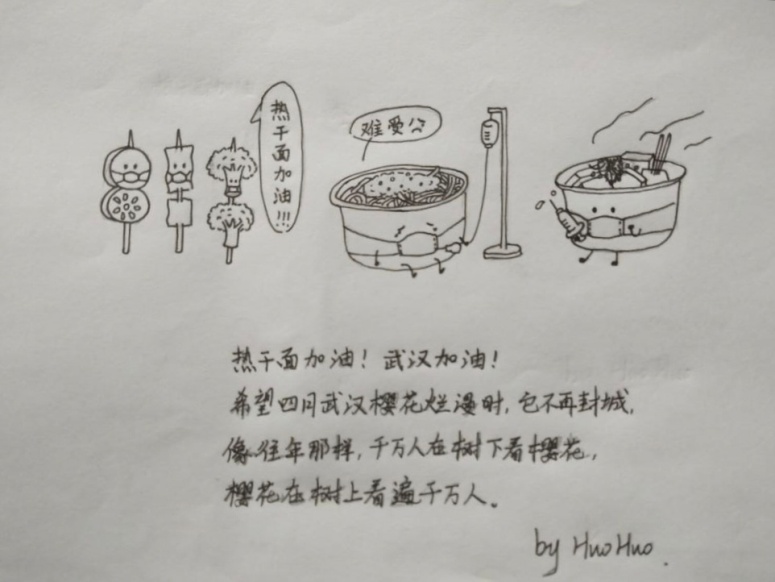 热干面加油!!!
难受公
热干面加油！武汉加油！
希望四月武汉樱花烂漫时，它不再封城，
像往年那样，千万人在树下看樱花，
樱花在树上看遍千万人。
by HuoHuo.